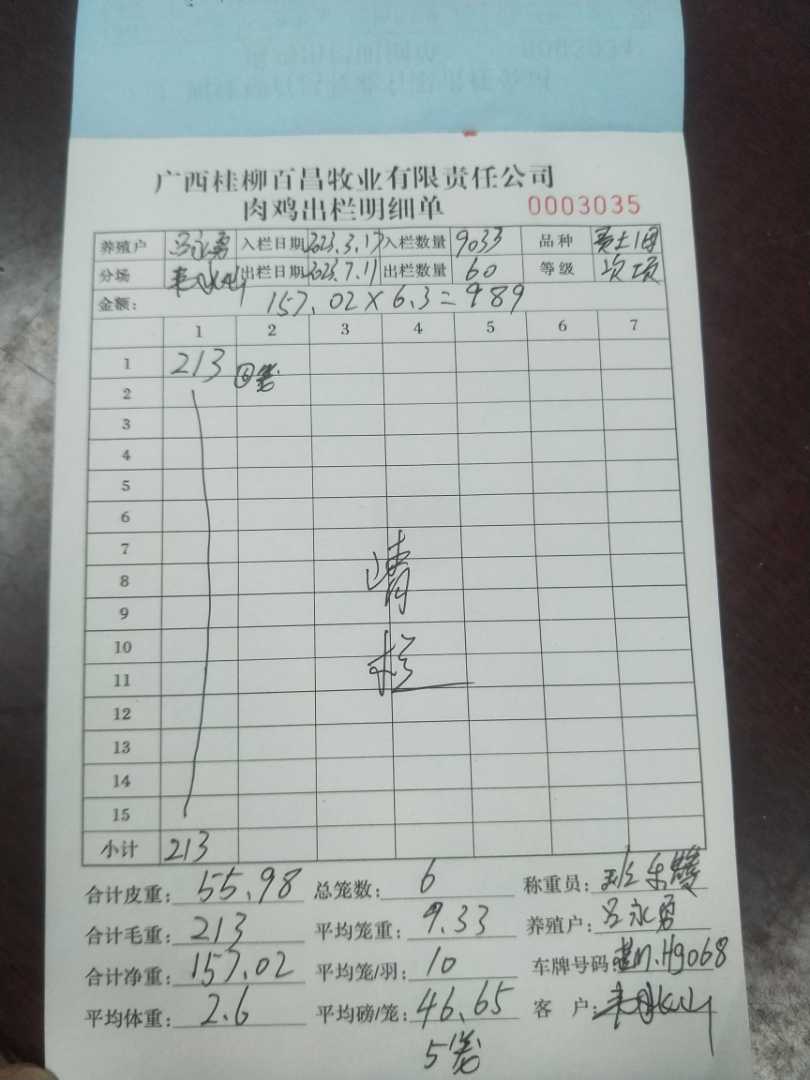 广西桂柳百昌牧业有限责任公司
肉鸡出栏明细单 0003035
养殖户 吕永勇 入栏日期 2023.3.17 入栏数量 9033 品种
分场 出栏日期 2023.7.11 出栏数量 60 等级 次项
金额: 157.02×6.3=989
1 2 3 4 5 6 7
1 213
2
3
4
5
6
7
8
9
10
11
12
13
14
15
清
栏
小计 213
合计皮重: 55.98 总笼数: 6 称重员:
合计毛重: 213 平均笼重: 9.33 养殖户: 吕永勇
合计净重: 157.02 平均笼/羽: 10 车牌号码: H9068
平均体重: 2.6 平均磅/笼: 46.65 客户:
5笼